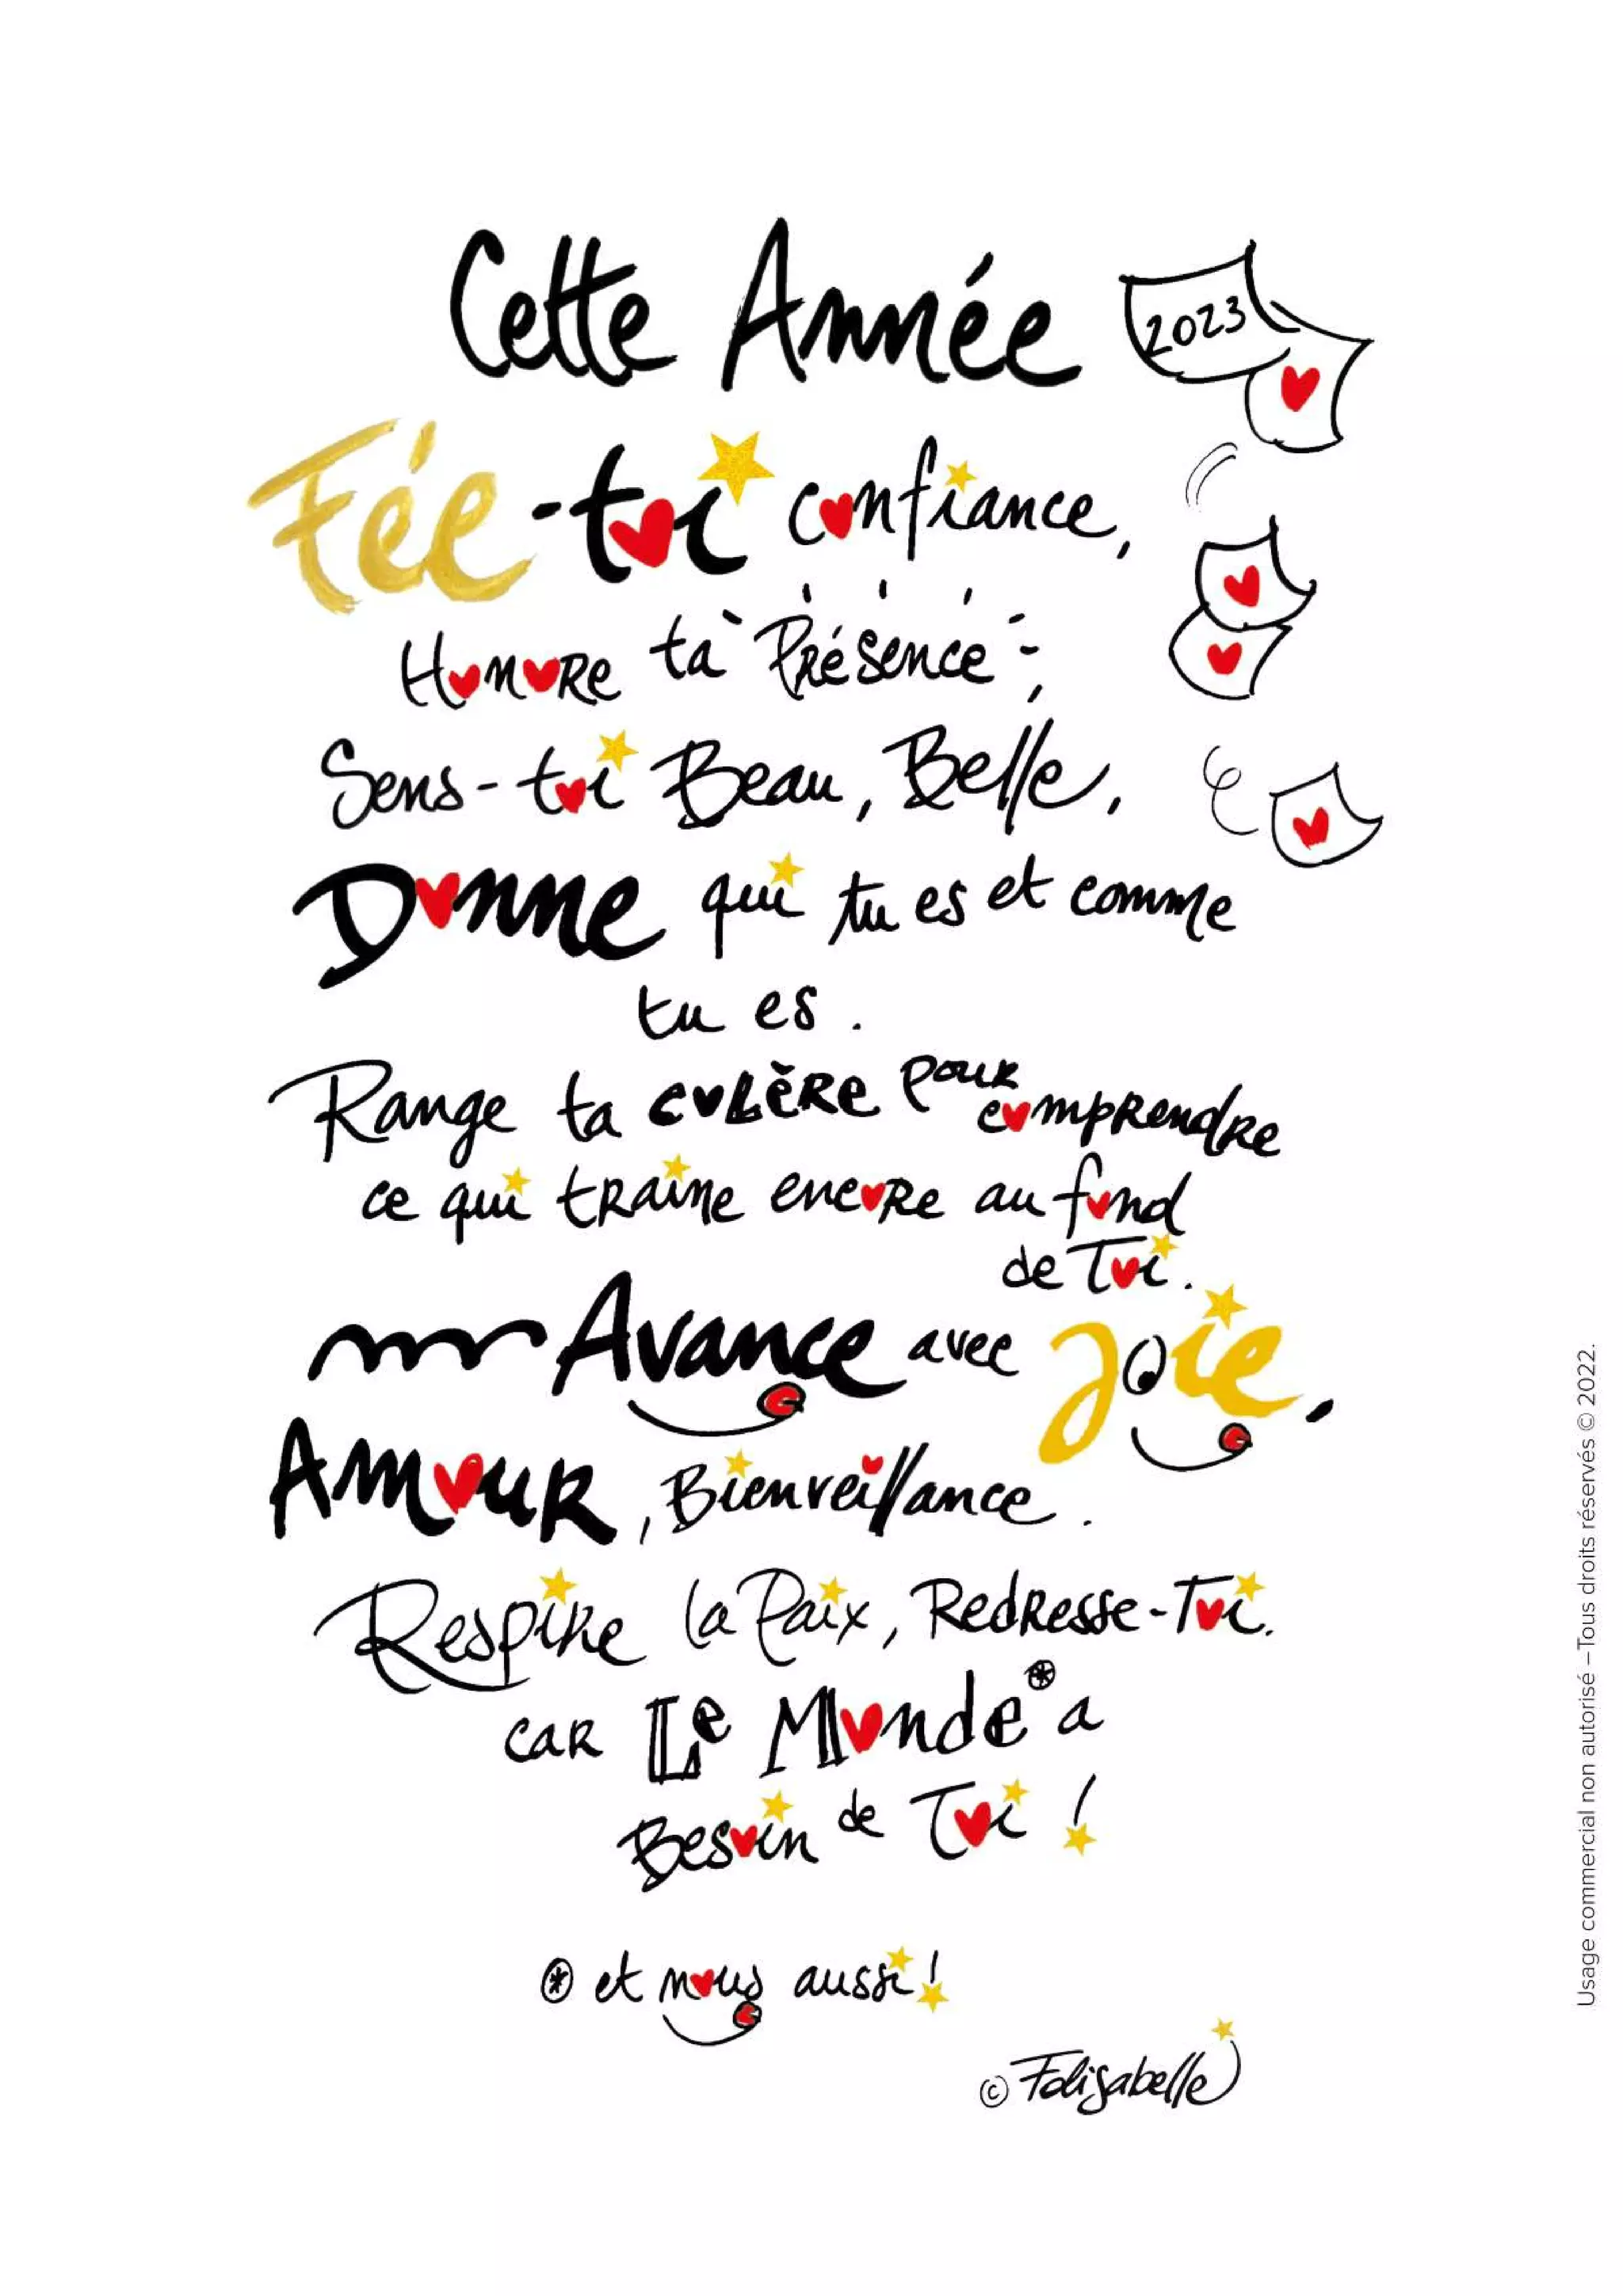 Cette Année 2023
Fée-toi confiance,
Honore ta Présence,
Sens-toi Beau, Belle,
Donne qui tu es et comme
tu es.
Range ta colère pour comprendre
ce qui traine encore au fond
de Toi.
Avance avec Joie,
Amour, Bienveillance.
Respire la Paix, Redresse-Toi.
car Le Monde* a
Besoin de Toi !
* et nous aussi !
© Folisabelle
Usage commercial non autorisé – Tous droits réservés © 2022.